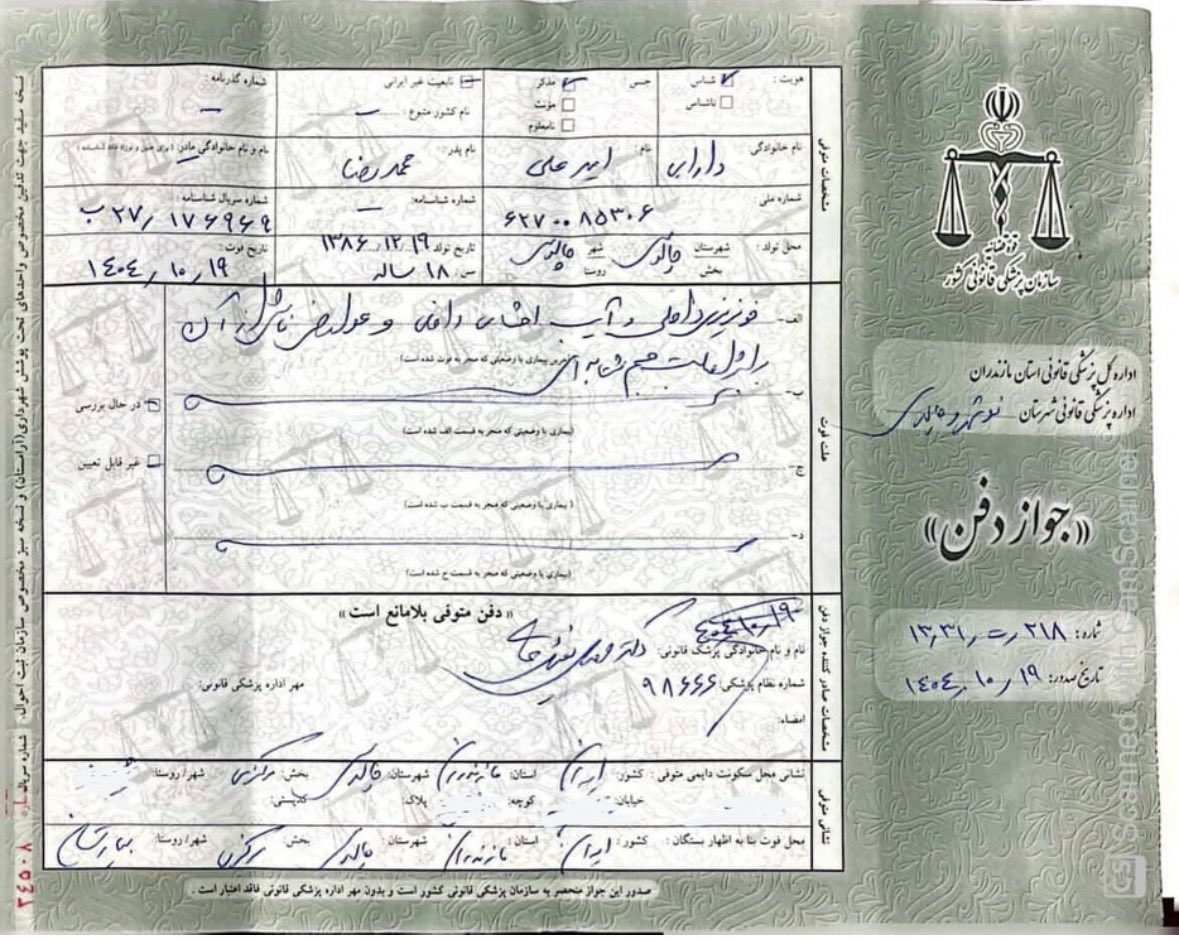 قوه قضائیه
سازمان پزشکی قانونی کشور
اداره کل پزشکی قانونی استان مازندران
اداره پزشکی قانونی شهرستان نوشهر و چالوس
«جواز دفن»
شماره: ۲۱۸ / ت / ۱۳٫۳۱
تاریخ صدور: ۱۹ / ۱۰ / ۱۴۰۴
مشخصات متوفی
هویت: شناس ناشناس جنس: مذکر مونث نامعلوم تابعیت غیر ایرانی نام کشور متبوع: شماره گذرنامه:
نام خانوادگی: دارابی نام: امیر علی نام پدر: محمدرضا نام و نام خانوادگی مادر:
شماره ملی: ۶۲۷۰۰۸۵۳۰۶ شماره شناسنامه: – شماره سریال شناسنامه: ب ۲۷ / ۱۷۶۹۶۹
محل تولد: شهرستان بخش چالوس شهر روستا چالوس تاریخ تولد ۱۳۸۶/۱۲/۱۹ سن: ۱۸ ساله تاریخ فوت: ۱۴۰۴ / ۱۰ / ۱۹
علت فوت
الف- خونریزی داخلی و آسیب احشای داخلی و عوارض ناشی از آن
بر اثر اصابت جسم پرتابه ای
(آخرین بیماری یا وضعیتی که منجر به فوت شده است)
ب-
(بیماری یا وضعیتی که منجر به قسمت الف شده است)
ج-
(بیماری یا وضعیتی که منجر به قسمت ب شده است)
د-
(بیماری یا وضعیتی که منجر به قسمت ج شده است)
در حال بررسی
غیر قابل تعیین
مشخصات صادر کننده جواز دفن
« دفن متوفی بلامانع است »
۱۴۰۴/۱۰/۱۹
نام و نام خانوادگی پزشک قانونی: دکتر
شماره نظام پزشکی: ۹۸۶۶۶ مهر اداره پزشکی قانونی:
امضاء:
نشانی متوفی
نشانی محل سکونت دایمی متوفی: کشور: ایران استان: مازندران شهرستان: چالوس بخش: مرکزی شهر/ روستا:
خیابان: کوچه: پلاک: کدپستی:
محل فوت بنا به اظهار بستگان: کشور: ایران استان: مازندران شهرستان: چالوس بخش: مرکزی شهر/ روستا: بیمارستان
صدور این جواز منحصر به سازمان پزشکی قانونی کشور است و بدون مهر اداره پزشکی قانونی فاقد اعتبار است.
نسخه سفید جهت تدفین مخصوص واحدهای تحت پوشش شهرداری(آرامستان) و نسخه سبز مخصوص سازمان ثبت احوال. شماره سریال
شماره ۳۴۵۰۸
Scanned with CamScanner
CS